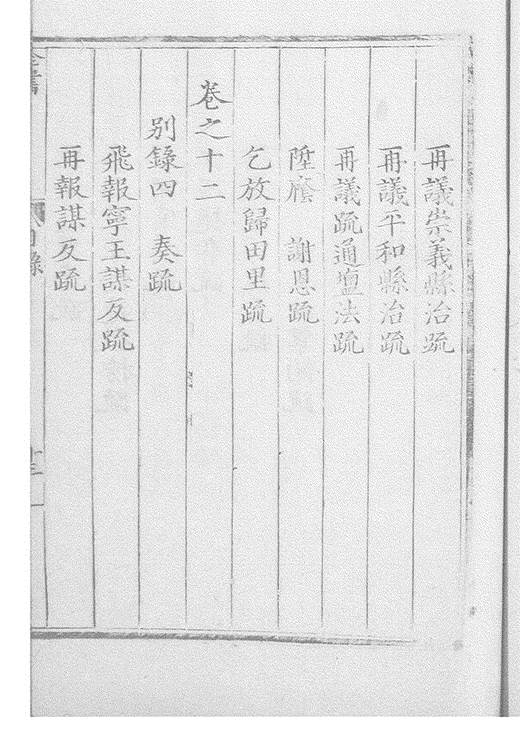 再議崇義縣治疏
再議平和縣治疏
再議疏通鹽法疏
陞廕 謝恩疏
乞放歸田里疏
卷之十二
別錄四 奏疏
飛報寧王謀反疏
再報謀反疏
全書 目錄 十三